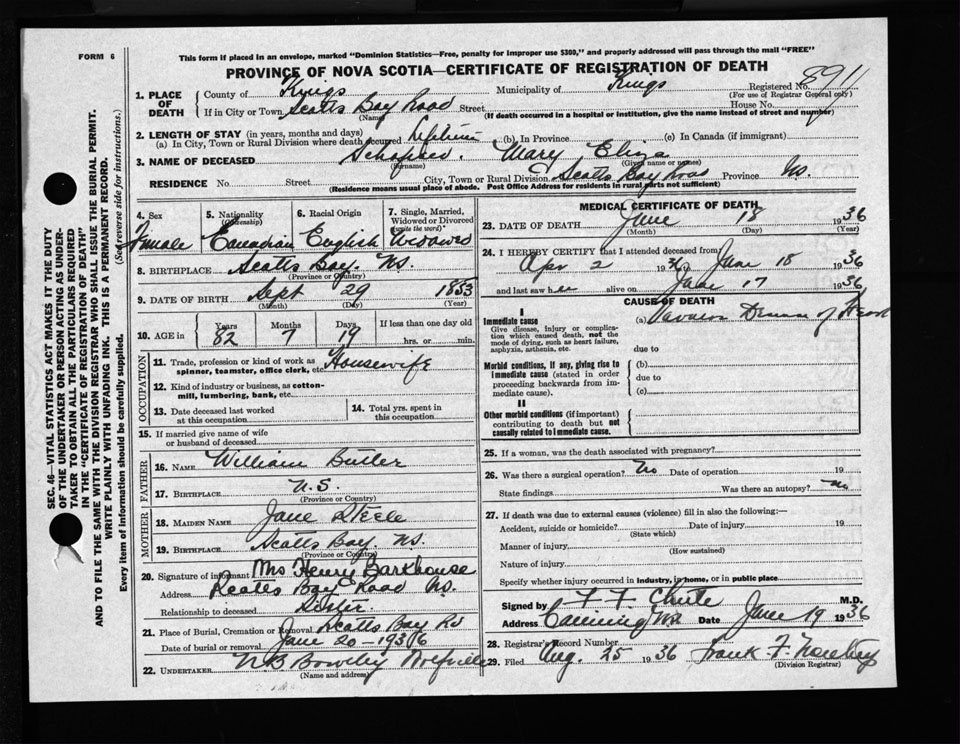 FORM 6
This form if placed in an envelope, marked "Dominion Statistics—Free, penalty for improper use $300," and properly addressed will pass through the mail "FREE"
PROVINCE OF NOVA SCOTIA—CERTIFICATE OF REGISTRATION OF DEATH
1. PLACE OF DEATH
County of Kings Municipality of Kings Registered No. 891
(For use of Registrar General only)
If in City or Town Scotts Bay Road Street House No.
(Name) (If death occurred in a hospital or institution, give the name instead of street and number)
2. LENGTH OF STAY (in years, months and days)
(a) In City, Town or Rural Division where death occurred Lifetime (b) In Province (c) In Canada (if immigrant)
3. NAME OF DECEASED Mary Eliza
(Surname) (Given name or names)
RESIDENCE No. Street City, Town or Rural Division Scotts Bay Road Province NS.
(Residence means usual place of abode. Post Office Address for residents in rural parts not sufficient)
4. Sex Female
5. Nationality (Citizenship) Canadian
6. Racial Origin English
7. Single, Married, Widowed or Divorced (write the word) Widowed
8. BIRTHPLACE Scotts Bay NS.
(Province or Country)
9. DATE OF BIRTH Sept 29 1853
(Month) (Day) (Year)
10. AGE in Years 82 Months 7 Days 19 If less than one day old hrs. or min.
OCCUPATION
11. Trade, profession or kind of work as spinner, teamster, office clerk, etc. Housewife
12. Kind of industry or business, as cotton-mill, lumbering, bank, etc.
13. Date deceased last worked at this occupation
14. Total yrs. spent in this occupation
15. If married give name of wife or husband of deceased
FATHER
16. NAME William Butler
17. BIRTHPLACE N.S.
(Province or Country)
MOTHER
18. MAIDEN NAME Jane Steele
19. BIRTHPLACE Scotts Bay NS.
(Province or Country)
20. Signature of informant Mrs Henry Barkhouse
Address Scotts Bay Road NS.
Relationship to deceased Sister
21. Place of Burial, Cremation or Removal Scotts Bay Rd
Date of burial or removal June 20-1936
22. UNDERTAKER Wolfville
(Name and address)
MEDICAL CERTIFICATE OF DEATH
23. DATE OF DEATH June 18 1936
(Month) (Day) (Year)
24. I HEREBY CERTIFY that I attended deceased from
Apr 2 1936 to June 18 1936
and last saw her alive on June 17 1936
CAUSE OF DEATH
I
Immediate cause
Give disease, injury or complication which caused death, not the mode of dying, such as heart failure, asphyxia, asthenia, etc.
(a) Disease of Heart
due to
Morbid conditions, if any, giving rise to immediate cause (stated in order proceeding backwards from immediate cause).
(b)
due to
(c)
II
Other morbid conditions (if important) contributing to death but not causally related to immediate cause.
25. If a woman, was the death associated with pregnancy?
26. Was there a surgical operation? No Date of operation 19
State findings Was there an autopsy? No
27. If death was due to external causes (violence) fill in also the following:—
Accident, suicide or homicide? Date of injury 19
(State which)
Manner of injury
(How sustained)
Nature of injury
Specify whether injury occurred in industry, in home, or in public place
Signed by F. F. Chute M.D.
Address Canning NS. Date June 19 1936
28. Registrar's Record Number
29. Filed Aug. 25 1936 Frank F.
(Division Registrar)
SEC. 46—VITAL STATISTICS ACT MAKES IT THE DUTY
OF THE UNDERTAKER OR PERSON ACTING AS UNDER-
TAKER TO OBTAIN ALL THE PARTICULARS REQUIRED
IN THE "CERTIFICATE OF REGISTRATION OF DEATH"
AND TO FILE THE SAME WITH THE DIVISION REGISTRAR WHO SHALL ISSUE THE BURIAL PERMIT.
WRITE PLAINLY WITH UNFADING INK. THIS IS A PERMANENT RECORD.
Every item of information should be carefully supplied. (See reverse side for instructions.)